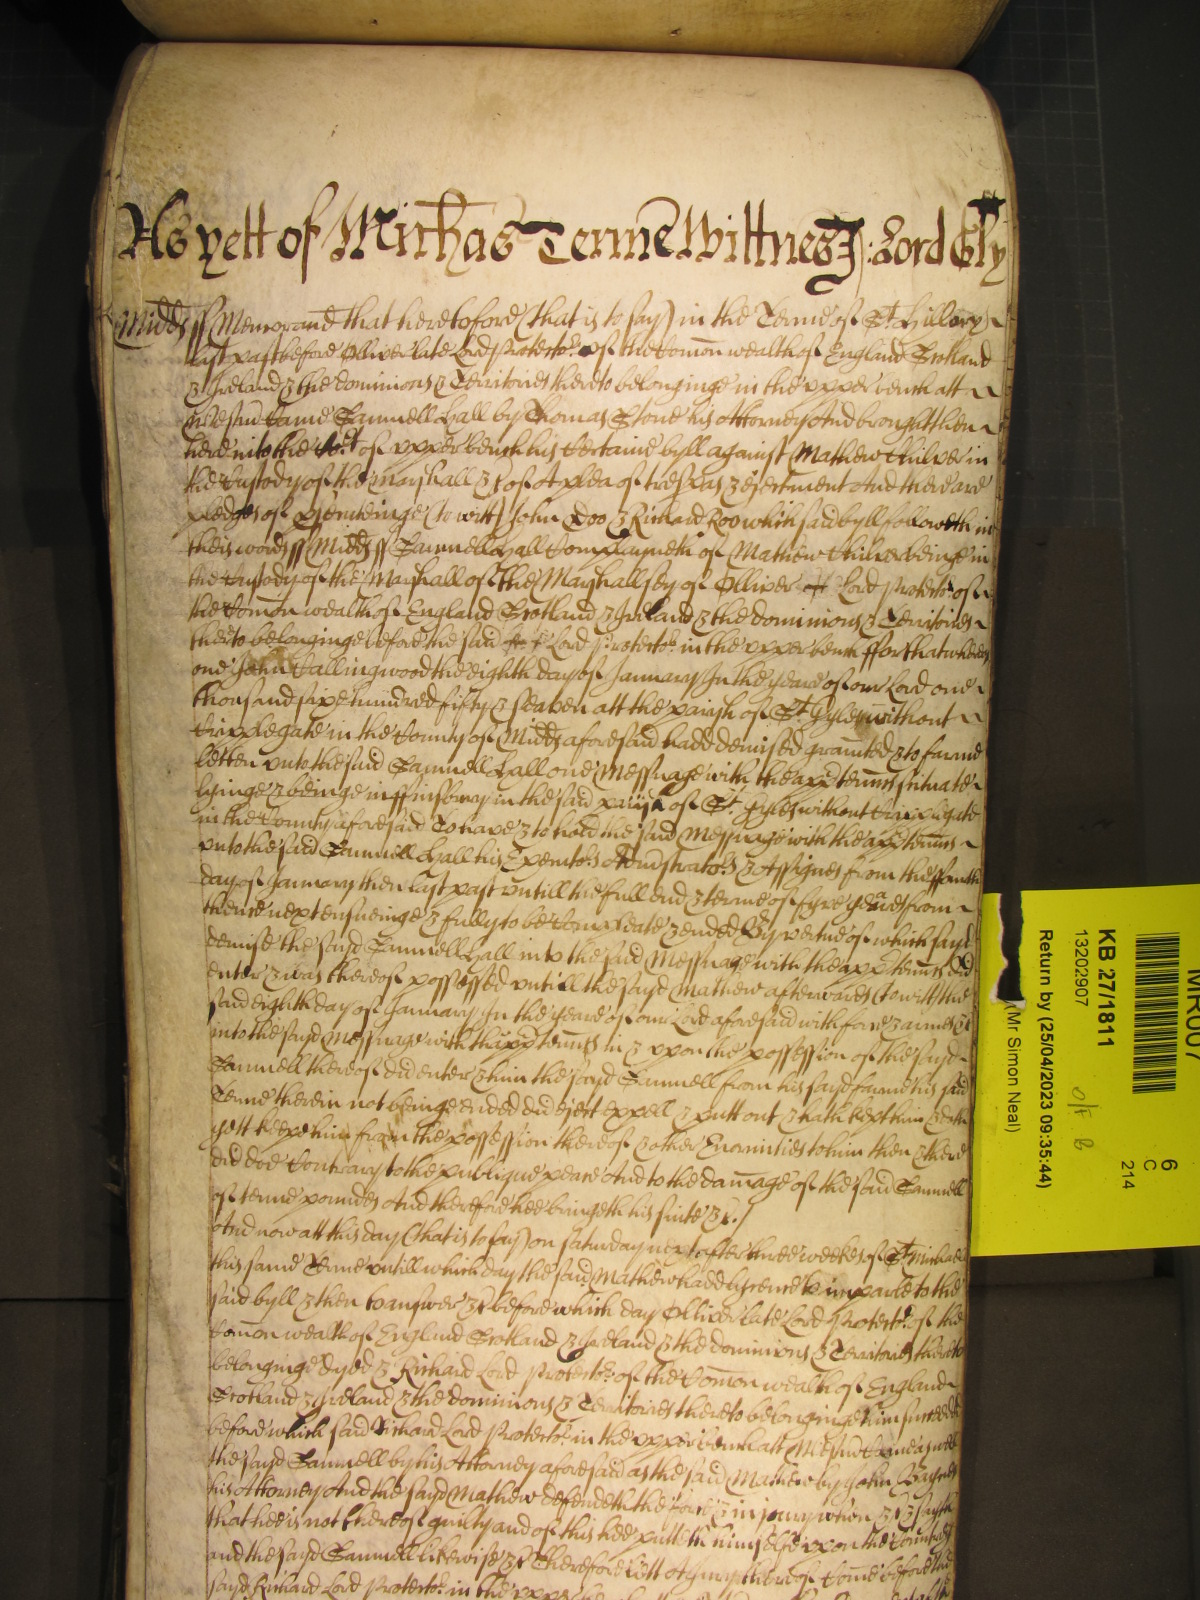 As yett of Michas Terme Wittnes J: Lord Gly
Midds ss Memorand that heretofore (that is to say) in the Terme of St Hillary
last past before Olliver late Lord Protector of the Comon wealth of England Scotland
& Ireland & the dominions & Territories thereto belonginge in the upper bench att
Westm̃ Came Samuell Hall by Thomas Stone his Attorney And brought then
here into the Cort of upper bench his Certaine byll against Mathew Chilver in
the Custody of the Marshall &c of A plea of trespas & ejectment And there are
pledges of prosecuteinge (to witt) John Doo & Richard Roo which said byll followeth in
theis words ss Midds ss Samuell Hall Complayneth of Mathew Chilver beinge in
the Custody of the Marshall of the Marshallsey of Olliver Lord Protector of
the Comon wealth of England Scotland & Ireland & the dominions & Territories
thereto belonginge before the said Lord Protector in the upper bench ffor that whereas
one John Collingwood the eighth day of January In the yeare of our Lord one
thousand sixe hundred fifty & seaven att the parish of St Gyles without
Cripplegate in the County of Midds aforesaid hadd demised graunted & to farme
letten unto the said Samuell Hall one Messuage with the appũtennts scituate
lyinge & beinge in ffinsbury in the said parish of St Gyles without Cripplegate
in the County aforesaid To have & to hold the said Messuage with the apptennts
unto the said Samuell Hall his Executors Administrators & Assignes from the ffourth
day of January then last past untill the full end & terme of fyve yeares from
thence next ensueinge & fully to be Compleate & ended By vertue of which sayd
demise the sayd Samuell Hall into the said Messuage with the apptennts did
enter & was thereof possessed untill the sayd Mathew afterwards (to witt) the
said eighth day of January In the yeare of our Lord aforesaid with force & armes &c
into the sayd Messuage with thapptennts In & uppon the possession of the sayd
Samuell thereof did enter & him the sayd Samuell from his sayd farme his said
Terme therein not beinge ended did eject expell & putt out & hath kept him & doth
yett keepe him from the possession thereof & other Enormities to him then & there
did doe Contrary to the publique peace And to the damage of the said Samuell
of tenne pounds And therefore hee bringeth his suite &c./
And now att this day (that is to say) on Saturday next after three weekes of St Michaell
this same Terme untill which day the said Mathew hadd lycence to imparle to the
said byll & then to answer &c before which day Olliver late Lord Protector of the
Comon wealth of England Scotland & Ireland & the dominions & Territories thereto
belonginge dyed & Richard Lord Protector of the Comon wealth of England
Scotland & Ireland & the dominions & Territories thereto belonginge him succeeded
before which said Richard Lord Protector in the upper bench att Westm̃ Came aswell
the sayd Samuell by his Attorney aforesaid as the said Mathew by John
his Attorney And the sayd Mathew defendeth the force & injury when &c & sayth
that hee is not thereof guilty and of this hee putteth himselfe upon the Countrey
and the sayd Samuell likewise &c Therefore lett A Jury thereof Come before the
sayd Richard Lord Protector in the upper
MR007
6
C
214
KB 27/1811
13202907
O/F B
Return by (25/04/2023 09:35:44)
(Mr Simon Neal)